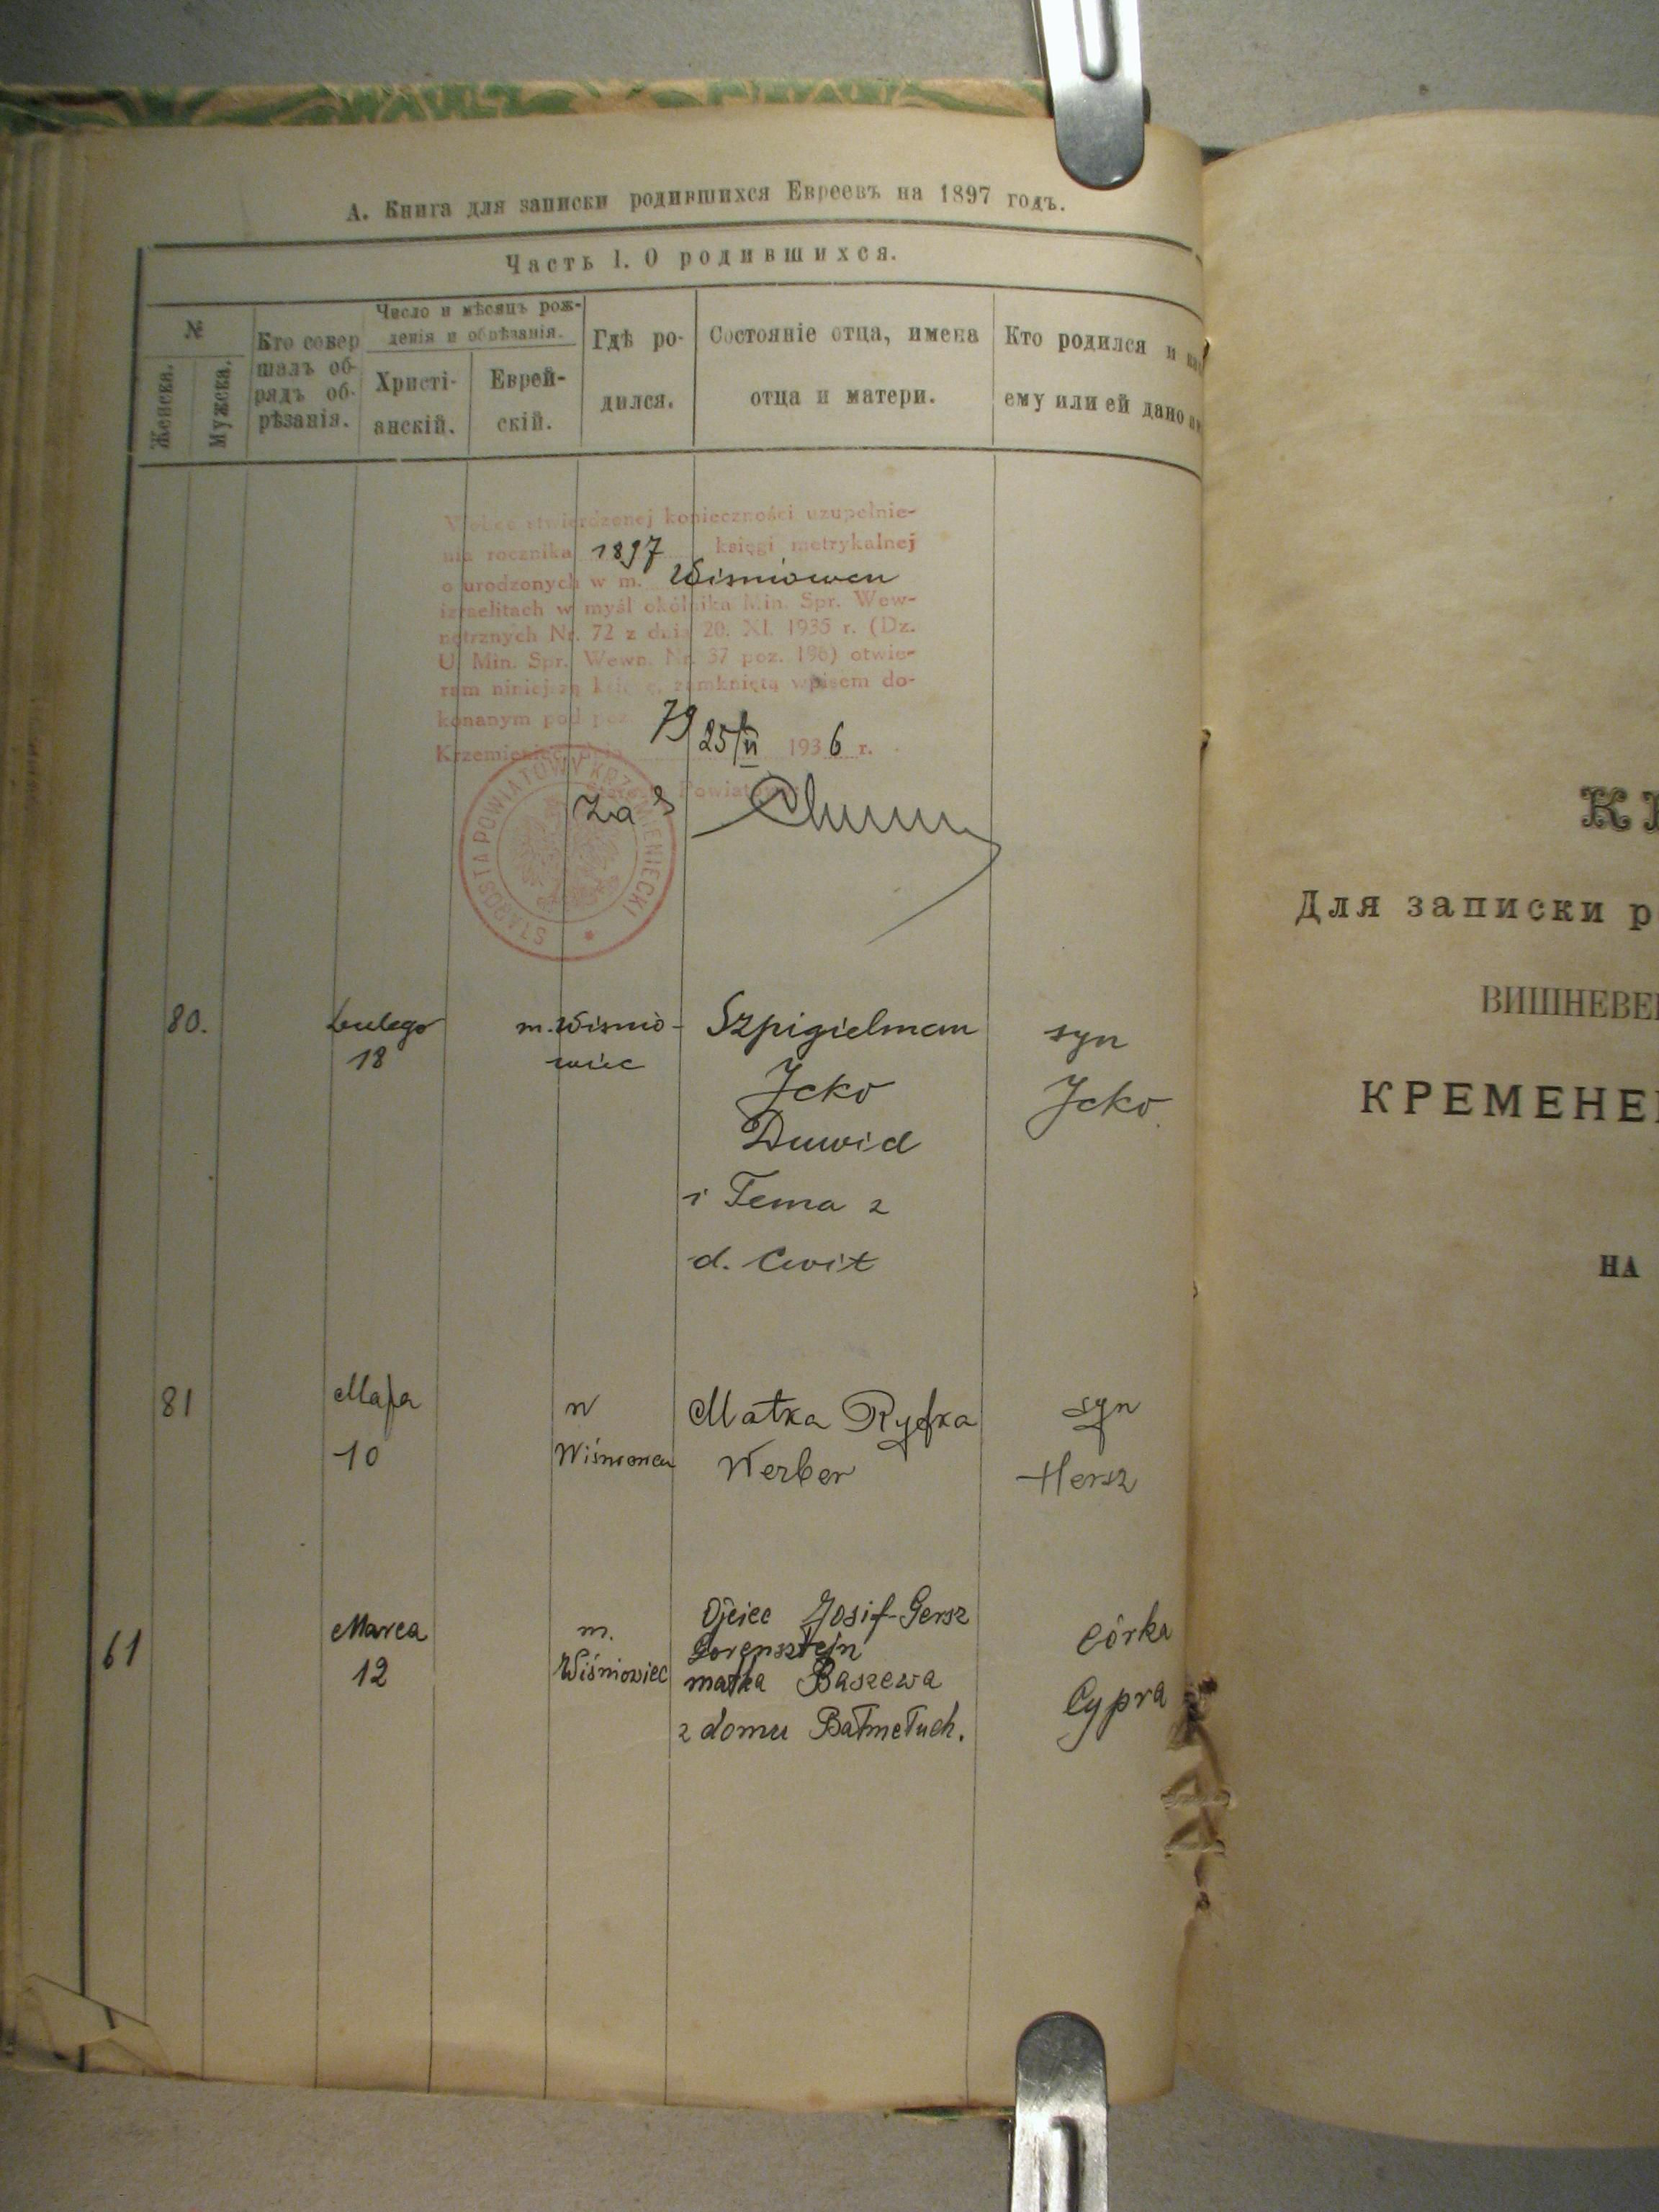 А. Книга для записки родившихся Евреевъ на 1897 годъ.
Часть 1. О родившихся.
№
Женска.
Мужска.
Кто совер
шалъ об-
рядъ об-
рѣзанія.
Число и мѣсяцъ рож-
денія и обрѣзанія.
Христі-
анскій.
Еврей-
скій.
Гдѣ ро-
дился.
Состояніе отца, имена
отца и матери.
Кто родился и
ему или ей дано
stwierdzonej konieczności uzupełnie-
nia rocznika 1897 księgi metrykalnej
o urodzonych w m. Wiśniowcu
izraelitach w myśl okólnika Min. Spr. Wew-
nętrznych Nr. 72 z dnia 20. XI. 1935 r. (Dz.
U. Min. Spr. Wewn. Nr. 37 poz. 196) otwie-
ram niniejszą księgę, zamkniętą wpisem do-
konanym pod poz. 79
Krzemieniec, dnia 25/VI 1936 r.
Starosta Powiatowy
Za
STAROSTA POWIATOWY KRZEMIENIECKI
80. Lutego 18 m. Wiśnio-
wiec
Szpigielman
Icko
Duwid
i Tema z
d. Cwit
syn
Icko
81 Maja
10
w
Wiśniowcu
Matka Ryfka
Werber
syn
Hersz
61 Marca
12
m.
Wiśniowiec
Ojciec Josif-Gersz
Gorensztejn
matka Baszewa
z domu Bałmełuch.
córka
Cypra
Для записки р
ВИШНЕВЕ
КРЕМЕНЕ
НА